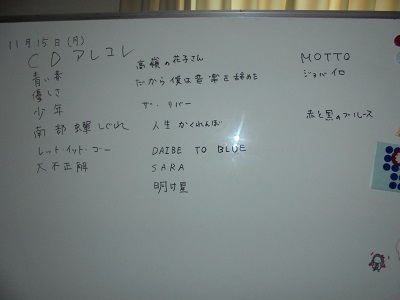 11月15日(月)
CDアレコレ
青い春
優しさ
少年
南部蝉しぐれ
レット・イット・ゴー
大不正解
高嶺の花子さん
だから僕は音楽を辞めた
ザ・リバー
人生かくれんぼ
DAIBE TO BLUE
SARA
明け星
MOTTO
ジョバイロ
赤と黒のブルース